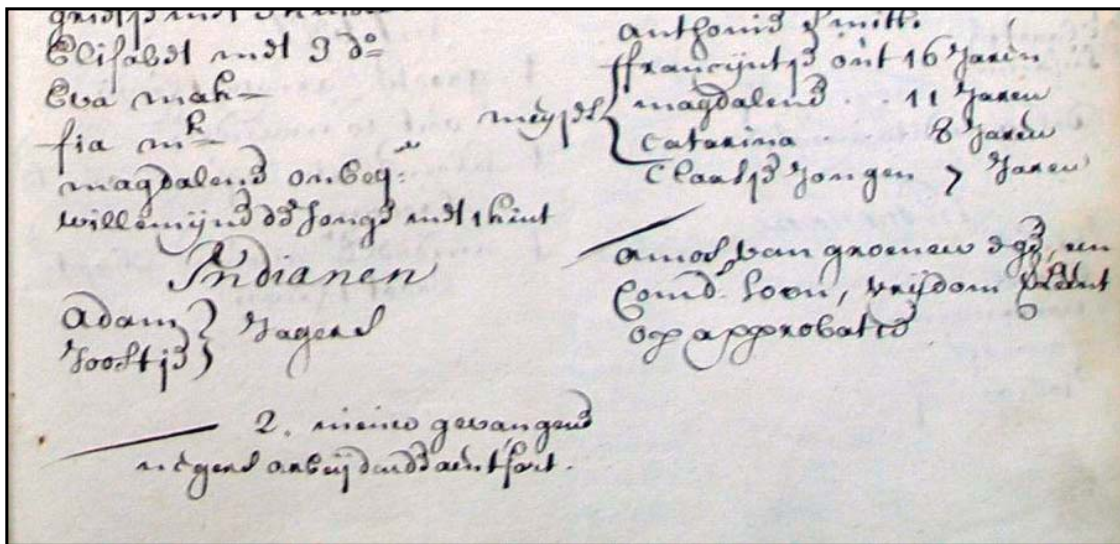 Elisabet met 3 do
Eva mak
fia mk
magdalena onbeq:
willemijne de jonge met 1 kint
Indianen
Adam } Jagers
Joostje }
2. nieuw gevangene
negers arbeijdende aent fort.
Anthonie Smitt.
meysjes { ffrancijntje out 16 Jaren
magdalena . . 11 Jaren
Catarina 8 Jaren
Claesje Jongen 7 Jaren
Amos van groenew
Comd.rs soon, vrijdom
op approbatie